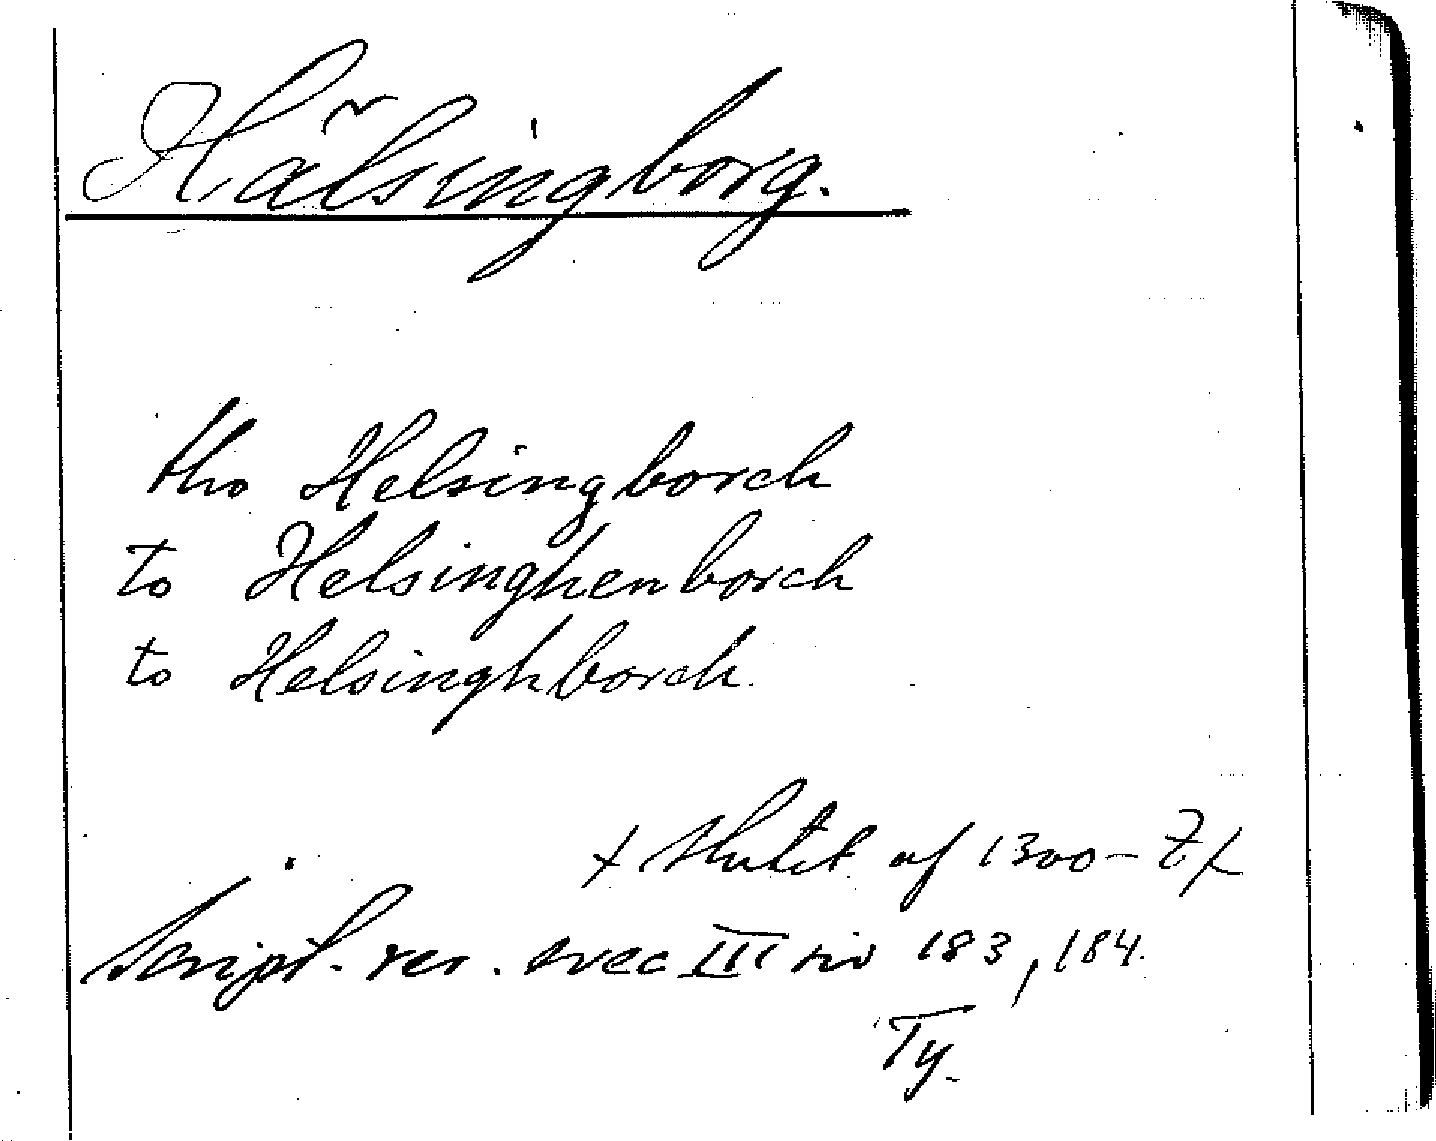 Hälsingborg.
tho Helsingborch
to Helsinghenborch
to Helsinghborch.
+ Slutet af 1300-t/
Script. rer. svec III sid 183, 184.
Ty.